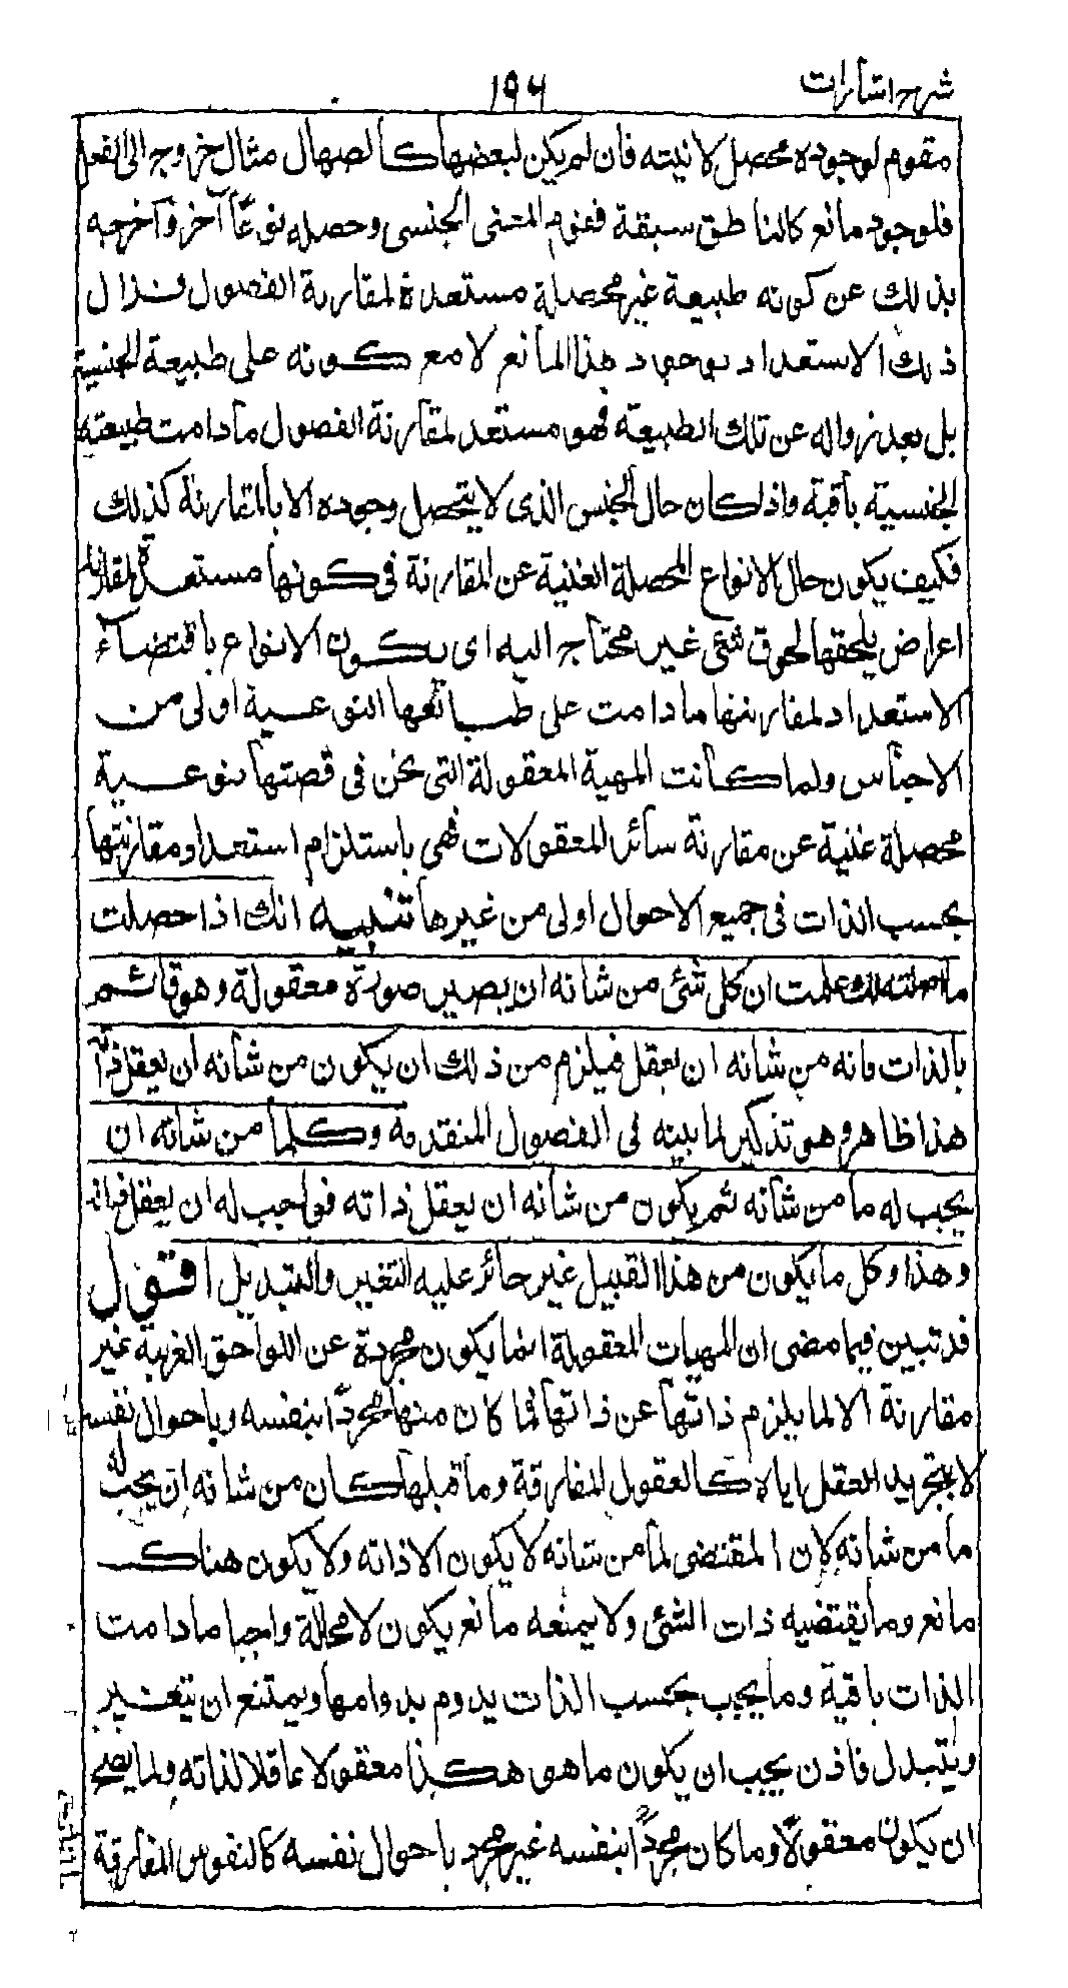 شرح اشارات
١٩٦
مقوم لوجوده محصل لانيته فان لم يكن لبعضها كالصهال مثال خروجه الى الفعل
فلوجود مانع كالناطق سبقة فقوم المعنى الجنسى وحصله نوعًا آخر فآخرجه
بذلك عن كونه طبيعة غير محصلة مستعدة لمقارنة الفصول فزال
ذلك الاستعداد بوجود هذا المانع لا مع كونه على طبيعة الجنسية
بل بعد زواله عن تلك الطبيعة فهو مستعد لمقارنة الفصول مادامت طبيعته
الجنسية باقية واذا كان حال الجنس الذى لا يتحصل وجوده الا بالمقارنة كذلك
فكيف يكون حال الانواع المحصلة الغنية عن المقارنة فى كونها مستعدة لمقارنة
اعراض يلحقها لحوق شئ غير محتاج اليه اى يكون الانواع باقتضاء
الاستعداد لمقارنتها مادامت على طبائعها النوعية اولى من
الاجناس ولما كانت المهية المعقولة التى نحن فى قصتها نوعية
محصلة غنية عن مقارنة سائر المعقولات فهى باستلزام استعداد مقارنتها
بحسب الذات فى جميع الاحوال اولى من غيرها تنبيه انك اذا حصلت
ما اصلته لك علمت ان كل شئ من شانه ان يصير صورة معقولة وهو قائم
بالذات فانه من شانه ان يعقل فيلزم من ذلك ان يكون من شانه ان يعقل ذاته
هذا ظاهر وهو تذكير لما بينه فى الفصول المتقدمة وكلما من شانه ان
يجب له ما من شانه ثم يكون من شانه ان يعقل ذاته فواجب له ان يعقل ذاته
وهذا وكل ما يكون من هذا القبيل غير جائز عليه التغير والتبديل اقول
قد تبين فيما مضى ان المهيات المعقولة انما يكون مجردة عن اللواحق الغريبة غير
مقارنة الا لما يلزم ذاتها عن ذاتها فما كان منها مجردًا بنفسه وباحوال نفسه
لا بتجريد العقل اياه كالعقول المفارقة وما قبلها كان من شانه ان يجب له
ما من شانه لان المقتضى لما من شانه لا يكون الا ذاته ولا يكون هناك
مانع وما يقتضيه ذات الشئ ولا يمنعه مانع يكون لا محالة واجبا مادامت
الذات باقية وما يجب بحسب الذات يدوم بدوامها ويمتنع ان يتغير
ويتبدل فاذن يجب ان يكون ما هو هكذا معقولا عاقلا لذاته ولما يصح
ان يكون معقولًا وما كان مجردًا بنفسه غير مجرد باحوال نفسه كالنفوس المفارقة